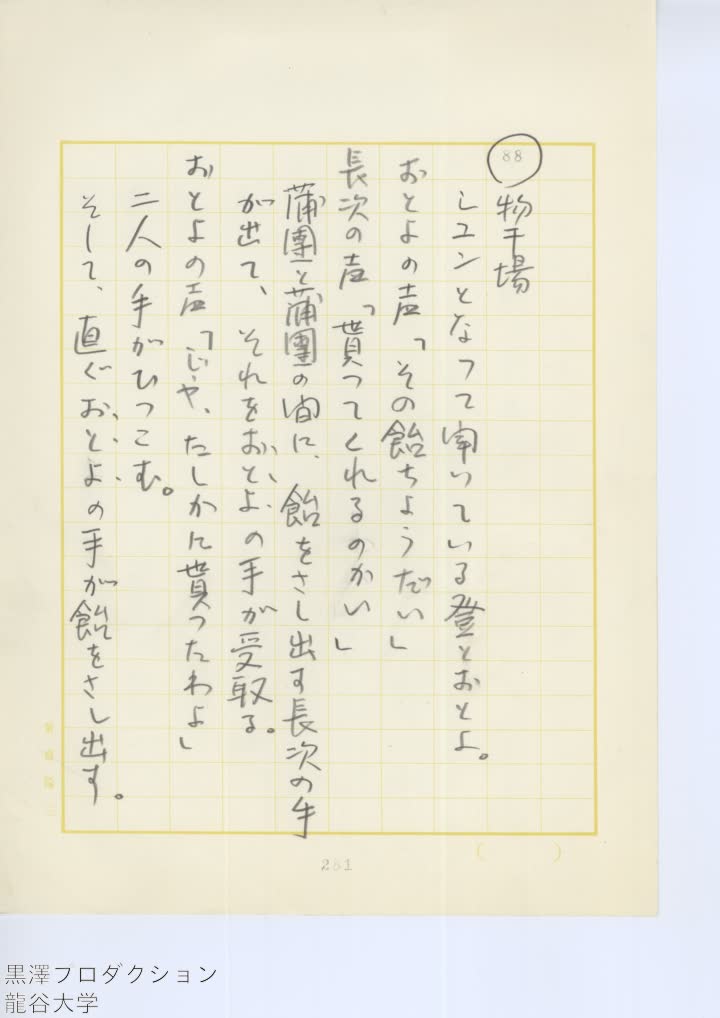 88
物干場
シユンとなつて聞いている登とおとよ。
おとよの声「その飴ちようだい」
長次の声「貰つてくれるのかい」
蒲團と蒲團の間に、飴をさし出す長次の手
が出て、それをおとよの手が受取る。
おとよの声「じや、たしかに貰つたわよ」
二人の手がひつこむ。
そして、直ぐおとよの手が飴をさし出す。
281
黒澤プロダクション
龍谷大学